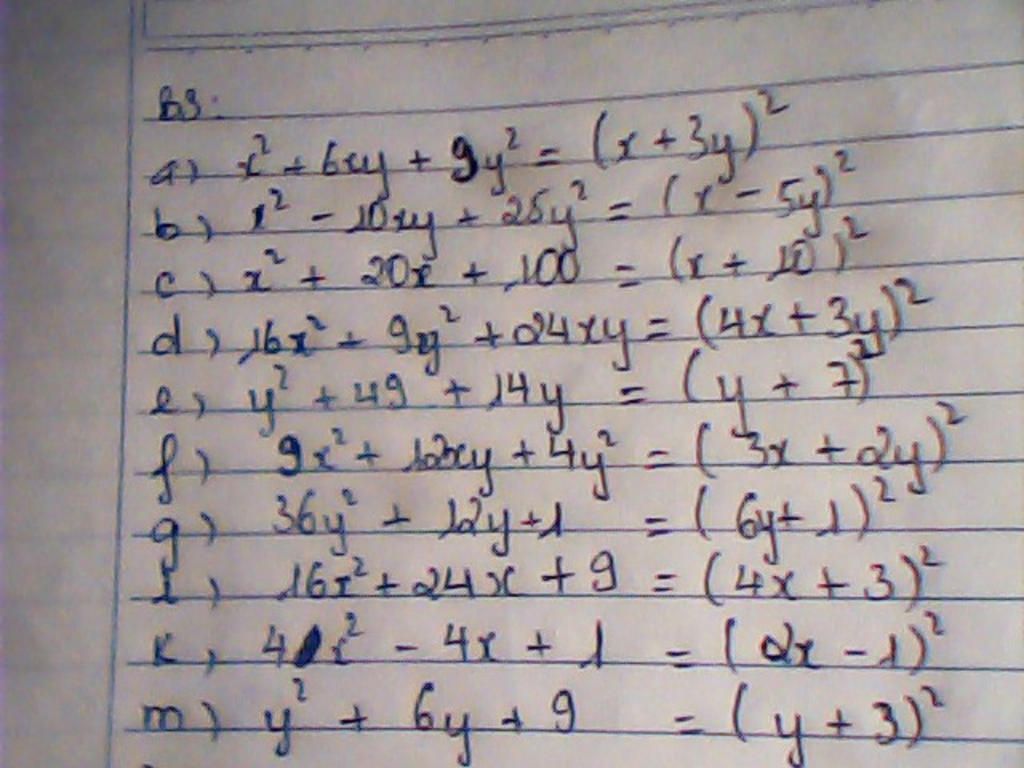 B3:
a) x² + 6xy + 9y² = (x + 3y)²
b) x² - 10xy + 25y² = (x - 5y)²
c) x² + 20x + 100 = (x + 10)²
d) 16x² + 9y² + 24xy = (4x + 3y)²
e) y² + 49 + 14y = (y + 7)²
f) 9x² + 12xy + 4y² = (3x + 2y)²
g) 36y² + 12y + 1 = (6y + 1)²
i) 16x² + 24x + 9 = (4x + 3)²
k) 4x² - 4x + 1 = (2x - 1)²
m) y² + 6y + 9 = (y + 3)²